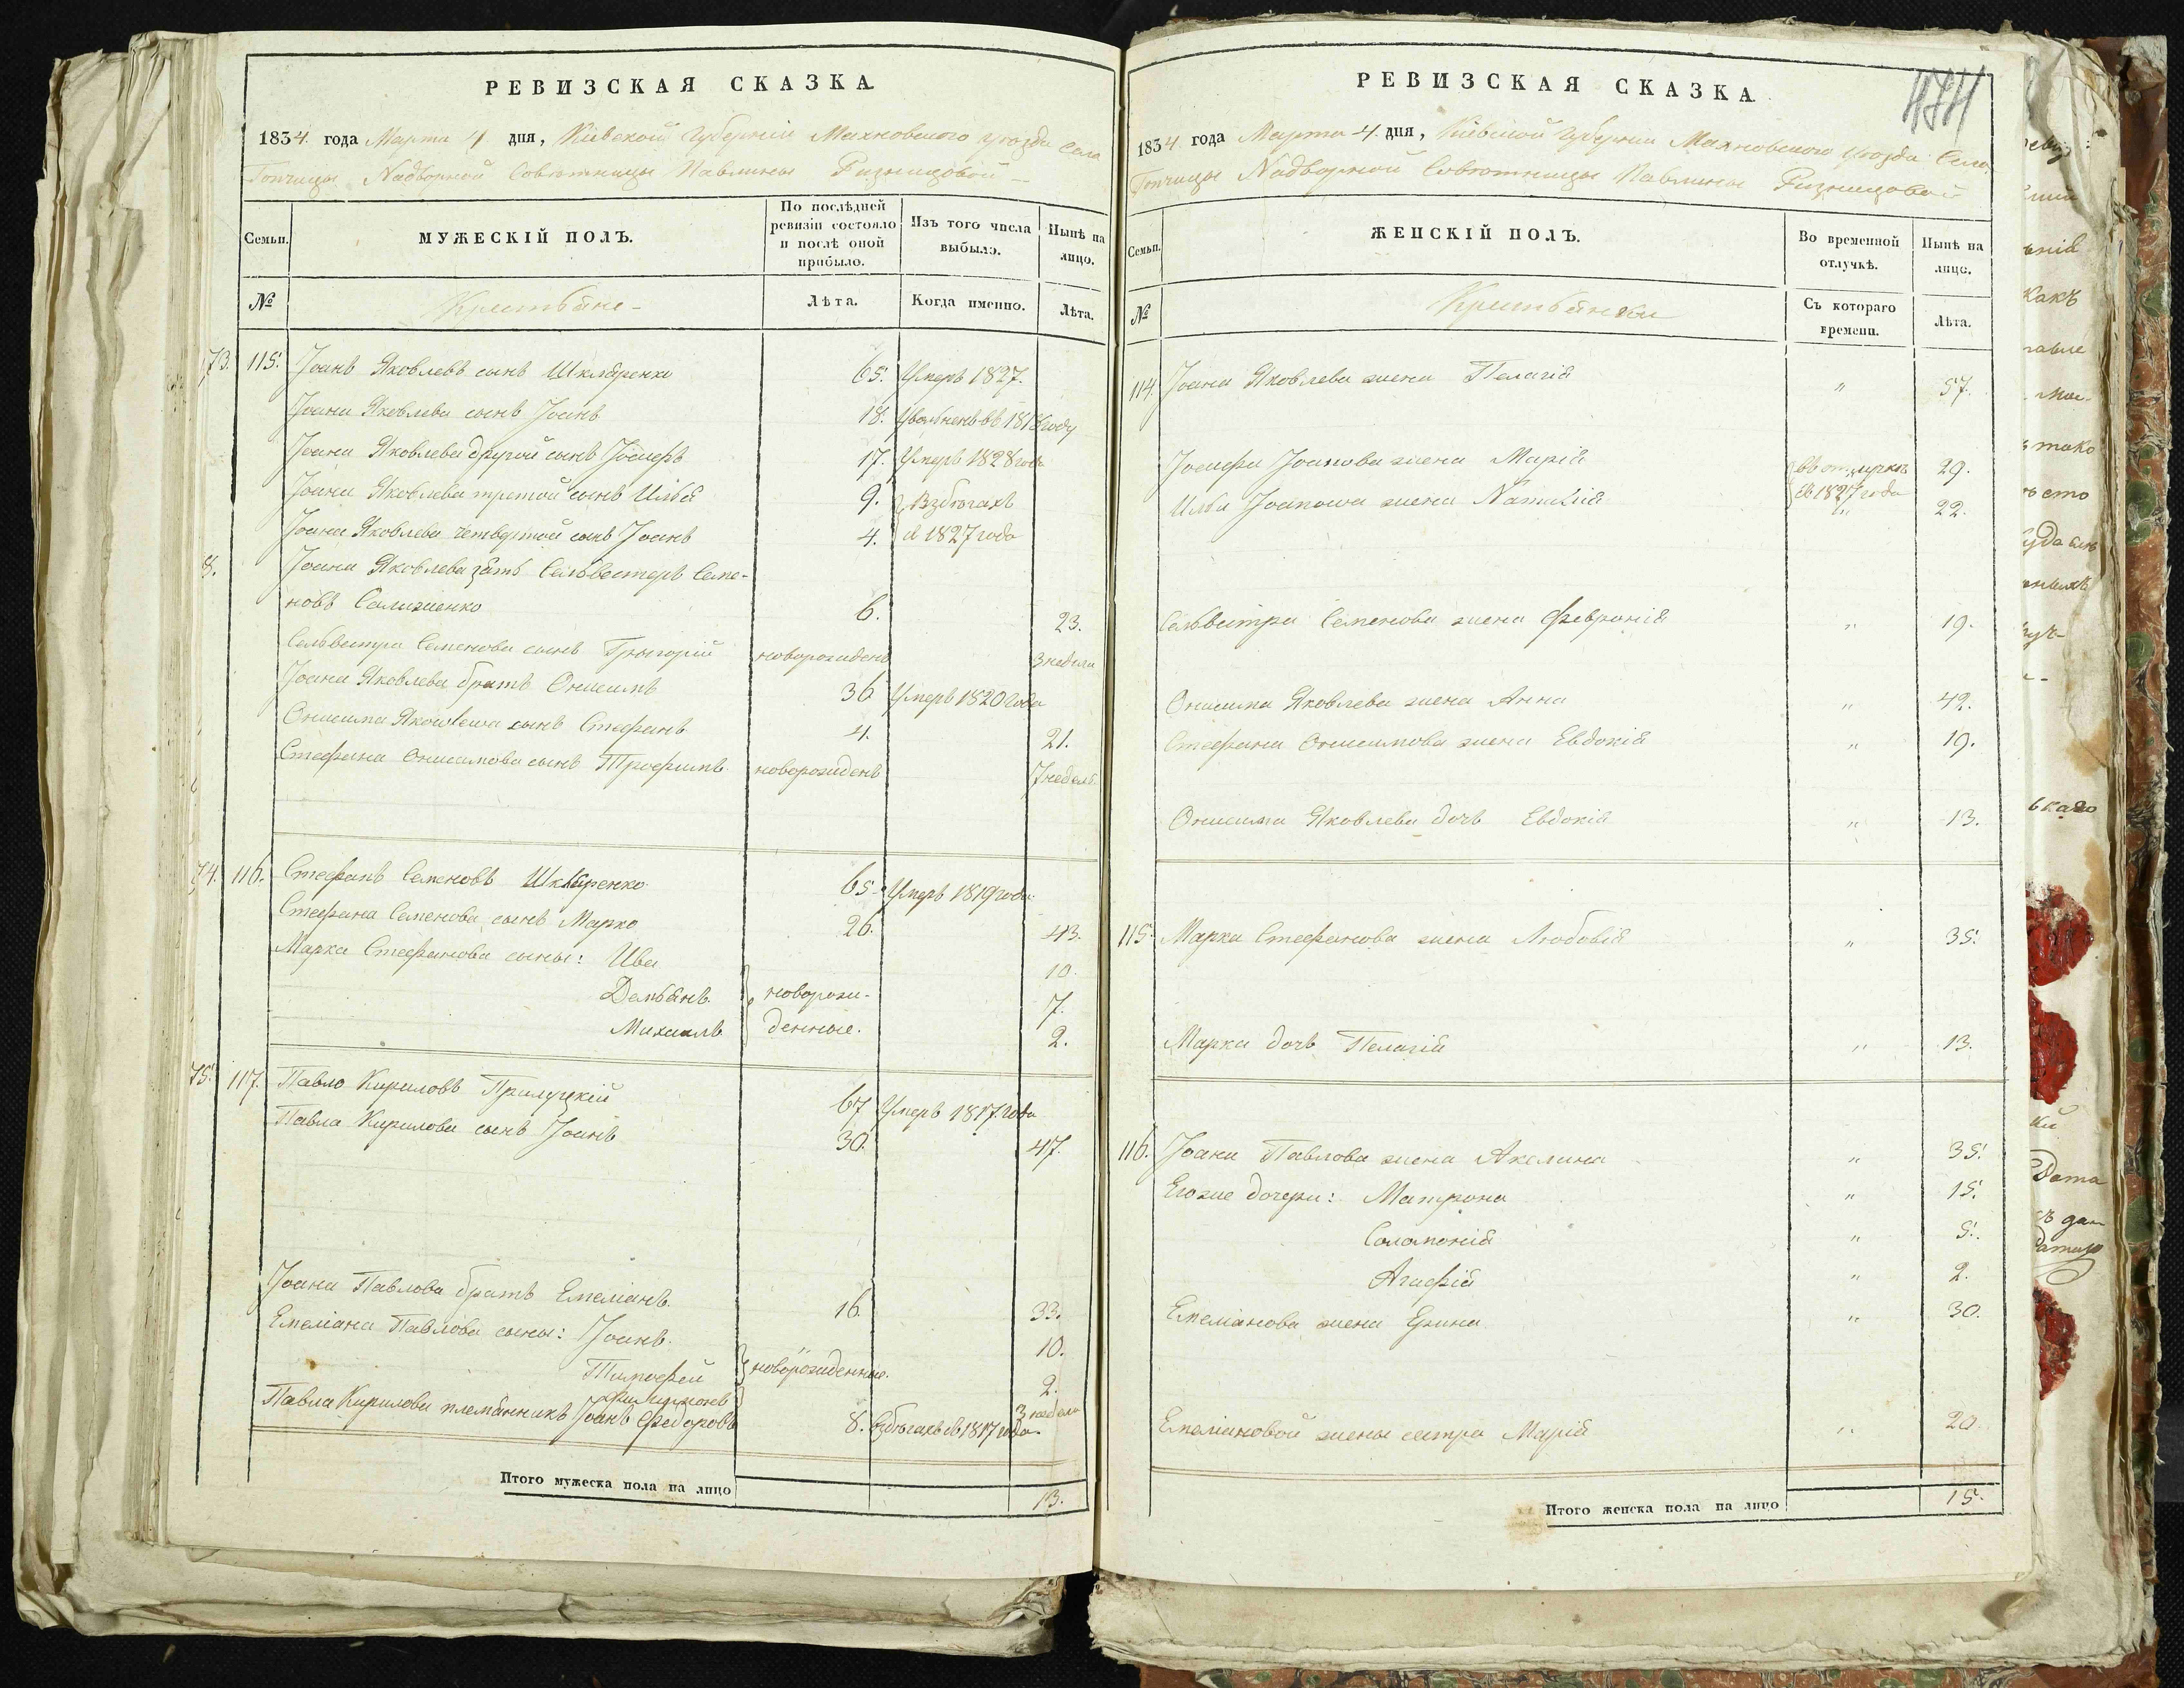 РЕВИЗСКАЯ СКАЗКА.
1834 года Марта 4 дня, Кіевской Губерніи Махновского уѣзда Села
Топчицы Надворной Совѣтницы Павлины
Семьи.
МУЖЕСКІЙ ПОЛЪ.
По послѣдней ревизіи состояло и послѣ оной прибыло.
Изъ того числа выбыло.
Нынѣ на лицо.
№
Крестьяне
Лѣта.
Когда именно.
Лѣта.
73. 115. Іоанъ Яковлевъ сынъ Шкляренко 65. Умеръ 1827.
Іоана Яковлева сынъ Іоанъ 18. 1818 году
Іоана Яковлева другой сынъ Іосифъ 17. Умеръ 1828 года
Іоана Яковлева третой сынъ Илья 9. Взбѣгахъ
Іоана Яковлева четвертой сынъ Іоанъ 4. съ 1827 года
8. Іоана Яковлева зять Сельвестеръ Семе-
новъ 6. 23.
Сельвестра Семенова сынъ Грыгорій новорожденъ 3 недели
Іоана Яковлева братъ Онисимъ 36 Умеръ 1820 года
Онисима сынъ Стефанъ 4. 21.
Стефана Онисимова сынъ Трофимъ новорожденъ 7 недель
74. 116. Стефанъ Семеновъ Шкляренко 65. Умеръ 1819 года
Стефана Семенова сынъ Марко 26. 43.
Марка Стефанова сыны: Ива 10.
Демьянъ новорож- 7.
Михаилъ денные. 2.
75. 117. Павло Кириловъ Прилуцкій 67 Умеръ 1817 года
Павла Кирилова сынъ Іоанъ 30. 47.
Іоана Павлова братъ Емеліанъ 16. 33.
Емеліана Павлова сыны: Іоанъ 10.
Тимофей новорожденные. 2.
Филимонъ 3 недели
Павла Кирилова племянникъ Іоанъ Федоровъ 8. Взбѣгахъ съ 1817 года
Итого мужеска пола на лицо 13.
РЕВИЗСКАЯ СКАЗКА.
474
1834 года Марта 4 дня, Кіевской Губерніи Махновского уѣзда Села
Топчицы Надворной Совѣтницы Павлины
Семьи.
ЖЕНСКІЙ ПОЛЪ.
Во временной отлучкѣ.
Нынѣ на лицо.
№
Крестьянки
Съ котораго времени.
Лѣта.
114. Іоана Яковлева жена Пелагія " 57.
Іосифа Іоанова жена Марія въ отлучкѣ 29.
Ильи Іоанова жена Наталія съ 1827 года " 22.
Сельвестра Семенова жена Февронія " 19.
Онисима Яковлева жена Анна " 42.
Стефана Онисимова жена Евдокія " 19.
Онисима Яковлева дочь Евдокія " 13.
115. Марка Стефанова жена Любовія " 35.
Марка дочь Пелагія " 13.
116. Іоана Павлова жена Акелина " 35.
Егоже дочери: Матрона " 15.
Соломонія " 5.
Агафія " 2.
Емеліанова жена " 30.
Емеліановой жены сестра Марія " 20.
Итого женска пола на лицо 15.